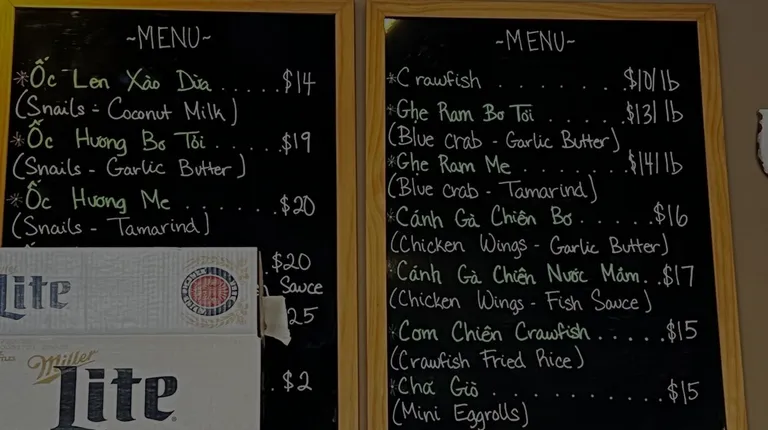 ~MENU~
*Ốc Len Xào Dừa ..... $14
(Snails - Coconut Milk)
*Ốc Hương Bơ Tỏi ..... $19
(Snails - Garlic Butter)
*Ốc Hương Me ...... $20
(Snails - Tamarind)
. $20
Sauce
25
. $2
Lite
Miller
Lite
~MENU~
*Crawfish ....... $10/lb
*Ghẹ Ram Bơ Tỏi ..... $13/lb
(Blue crab - Garlic Butter)
*Ghẹ Ram Me ....... $14/lb
(Blue crab - Tamarind)
*Cánh Gà Chiên Bơ ..... $16
(Chicken Wings - Garlic Butter)
*Cánh Gà Chiên Nước Mắm.. $17
(Chicken Wings - Fish Sauce)
*Cơm Chiên Crawfish..... $15
(Crawfish Fried Rice)
*Chả Giò ......... $15
(Mini Eggrolls)